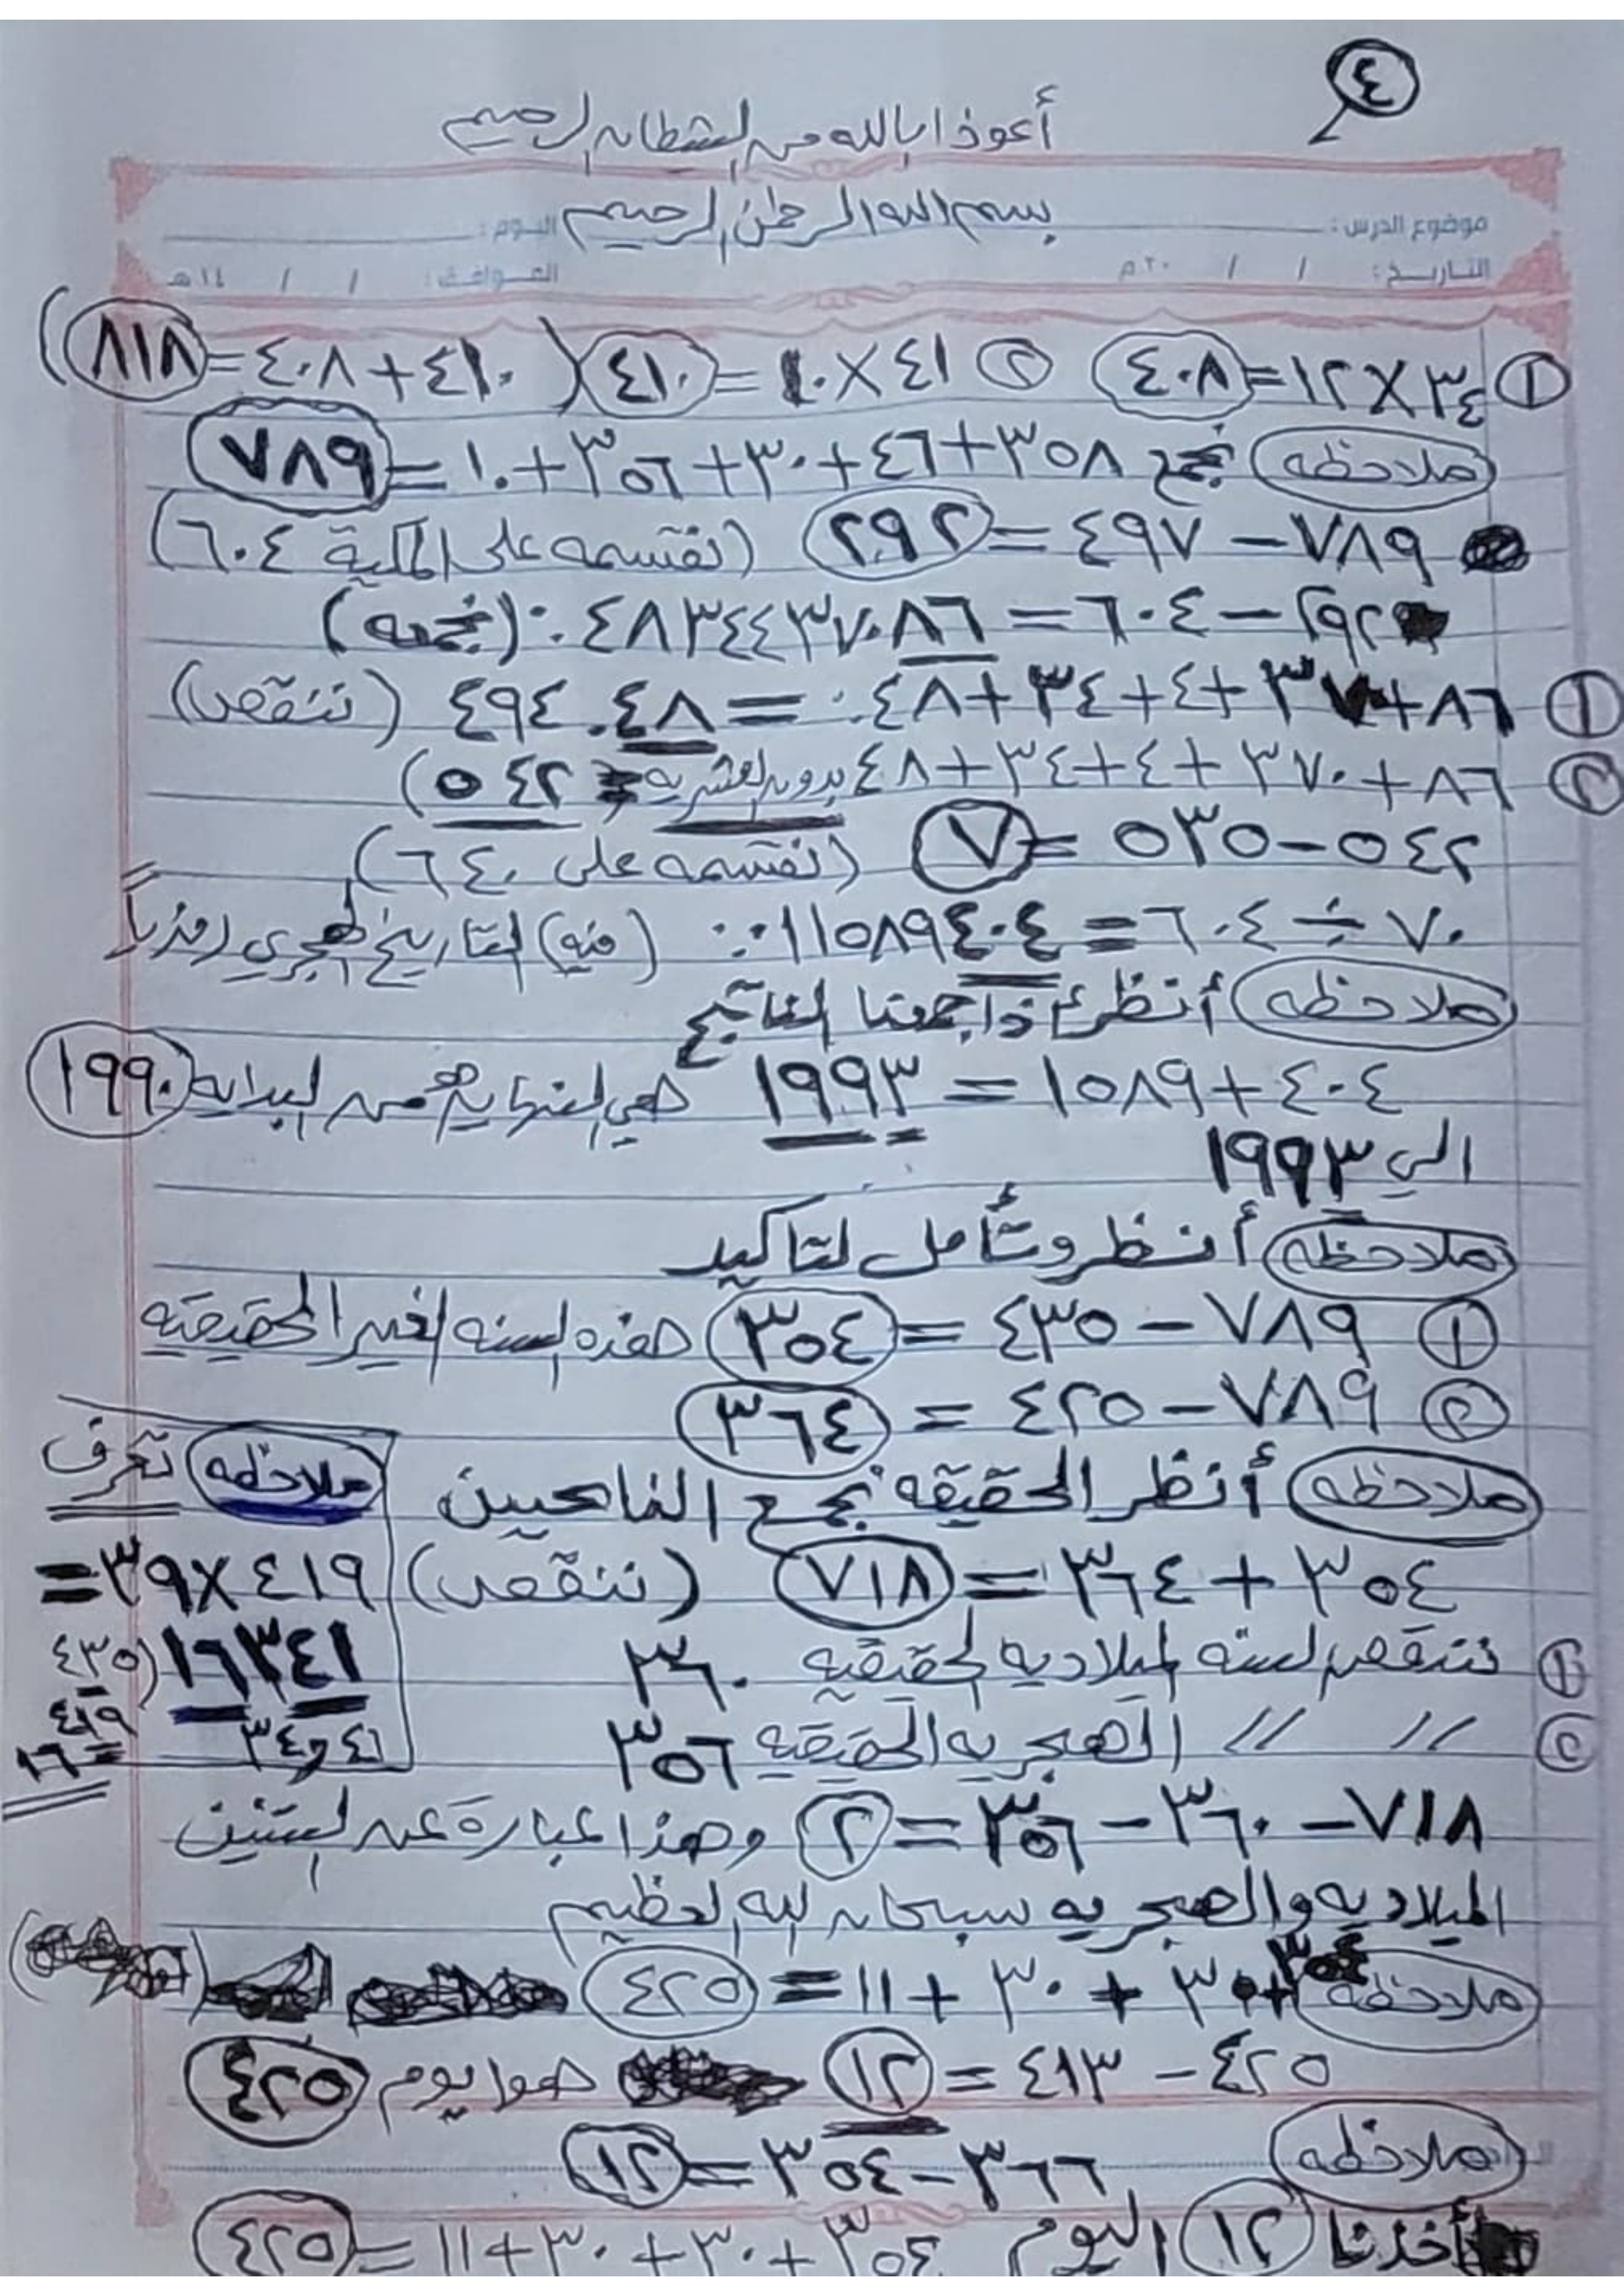 ٤
أعوذ ابالله من الشطان الرحيم
بسم الله الرحمٰن الرحيم
موضوع الدرس : اليوم :
التاريخ : / / ٢٠ م الموافق : / / ١٤ هـ
① ٣٤×١٢=٤٠٨ ② ٤١×١٠=٤١٠ (٤١٠+٤٠٨=٨١٨)
ملاحظه نجمع ٣٥٨+٤٦+٣٠+٣٥٦+١٠=٧٨٩
٧٨٩–٤٩٧=٢٩٢ (نقسمه على المكية ٦٠٤)
٢٩٢–٦٠٤=٤٨٣٤٤٣٧٠٨٦.٠ (نجمعه)
① ٨٦+٣٧+٤+٣٤+٤٨.=٤٩٤.٤٨ (ننقص)
② ٨٦+٣٧٠+٤+٣٤+٤٨ بدون العشريه = ٥٤٢)
٥٤٢–٥٣٥=٧ (نقسمه على ٦٤٠)
٧٠÷٦٠٤=١١٥٨٩٤٠٤.٠ (فيه) التاريخ الهجري
ملاحظه أنظر إذا جمعنا الناتج
٤٠٤+١٥٨٩=١٩٩٣ هي النهايه من البدايه ١٩٩٠
الى ١٩٩٣
ملاحظه أنظر وتأمل لتاكيد
① ٧٨٩–٤٣٥=٣٥٤ هذه السنه الغير الحقيقيه
② ٧٨٩–٤٢٥=٣٦٤
ملاحظه أنظر الحقيقه نجمع الناتحيين
٣٥٤+٣٦٤=٧١٨ (ننقص)
① ننقص السنه الميلاديه الحقيقيه ٣٦٠
② // // الهجريه الحقيقيه ٣٥٦
ملاحظه تعرف
٤١٩×٣٩=
١٦٣٤١ (٤٣٥
٤١٩
٤١ و ٣٤ =١٦
٧١٨–٣٦٠–٣٥٦=٢ وهذا عبارة عن السنتين
الميلاديه والهجريه سبحان الله العظيم
ملاحظه ٣٥٤+٣٠+٣٠+١١=٤٢٥
٤٢٥–٤١٣=١٢ هوا يوم ٤٢٥
ملاحظه ٣٦٦–٣٥٤=١٢
أخذنا ١٢ اليوم ٣٥٤+٣٠+٣٠+١١=٤٢٥